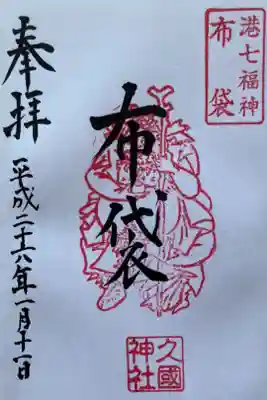 港七福神
布袋
布袋
久國
神社
奉拝
平成二十六年一月十一日